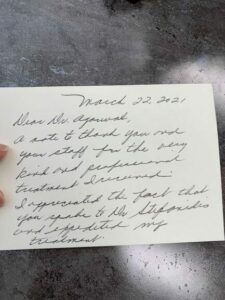 March 22, 2021
Dear Dr. Agarwal,
A note to thank you and
your staff for the very
kind and professional
treatment I received.
I appreciated the fact that
you spoke to Dr Stefanides
and expedited my
treatment.